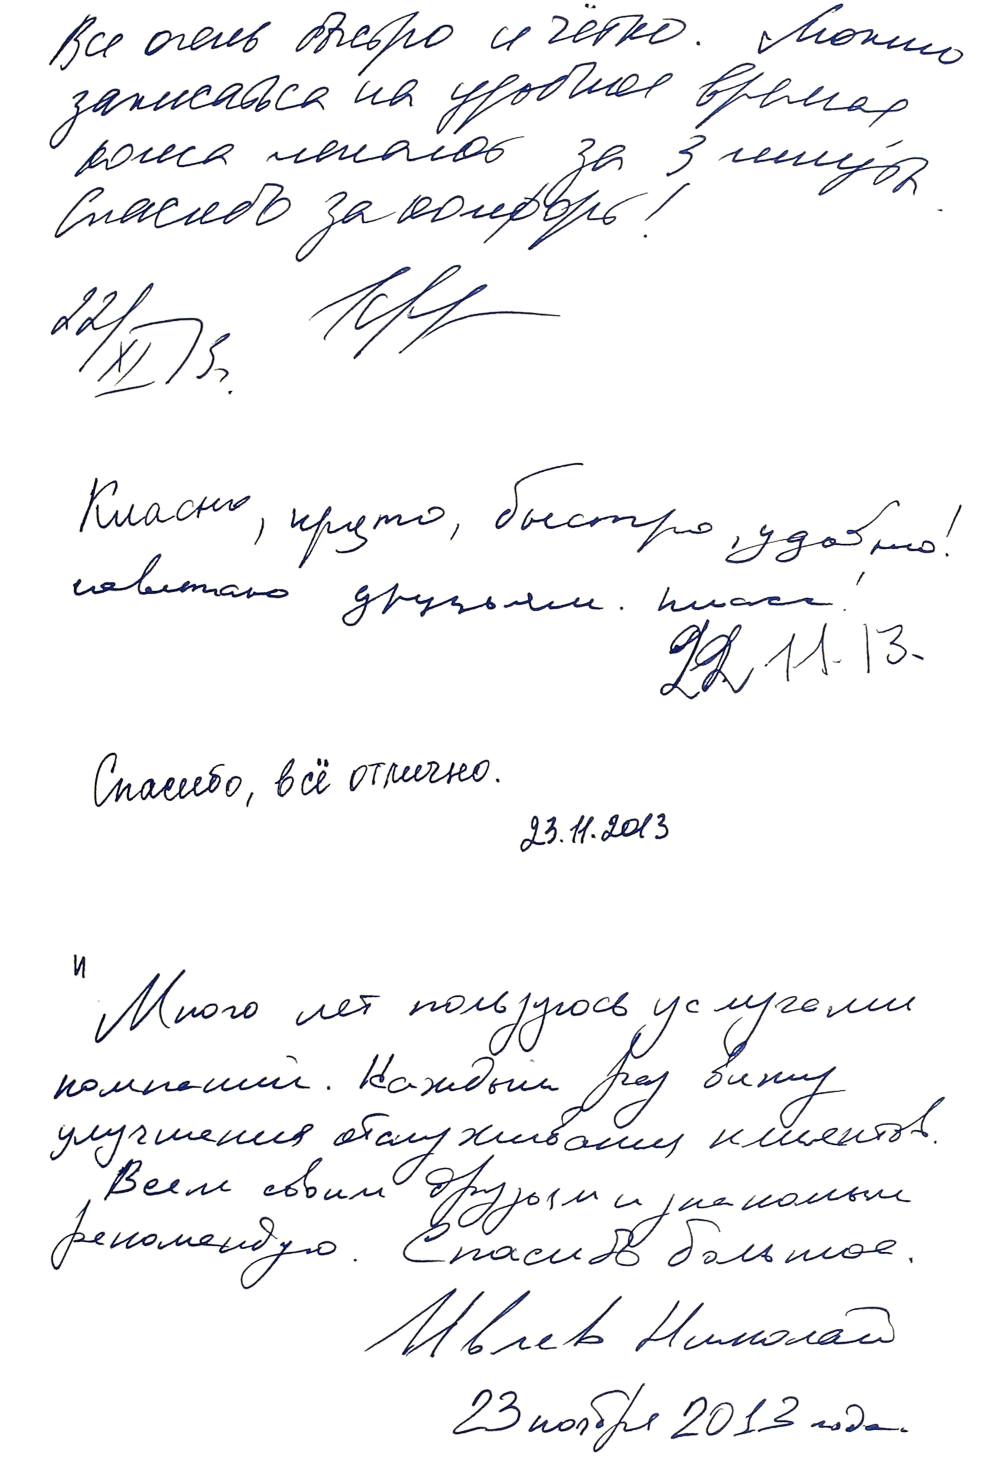 Все очень быстро и чётко. Можно
записаться на удобное время,
за 3 минуты
Спасибо за комфорт!
22/XI 13г.
Класно, круто, быстро, удобно!
советаю друзьям. класс!
22 11. 13.
Спасибо, всё отлично.
23.11.2013
И
Много лет пользуюсь услугами
компании. Каждый раз вижу
улучшения обслуживания клиентов.
Всем своим друзьям и знакомым
рекомендую. Спасибо большое.
Ивлев Николай
23 ноября 2013 года.